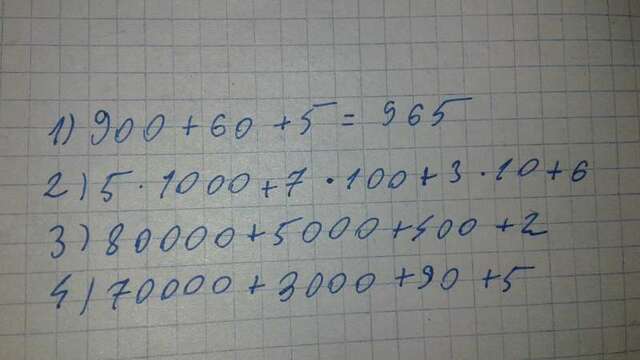 1) 900 + 60 + 5 = 965
2) 5 · 1000 + 7 · 100 + 3 · 10 + 6
3) 80000 + 5000 + 400 + 2
4) 70000 + 3000 + 90 + 5